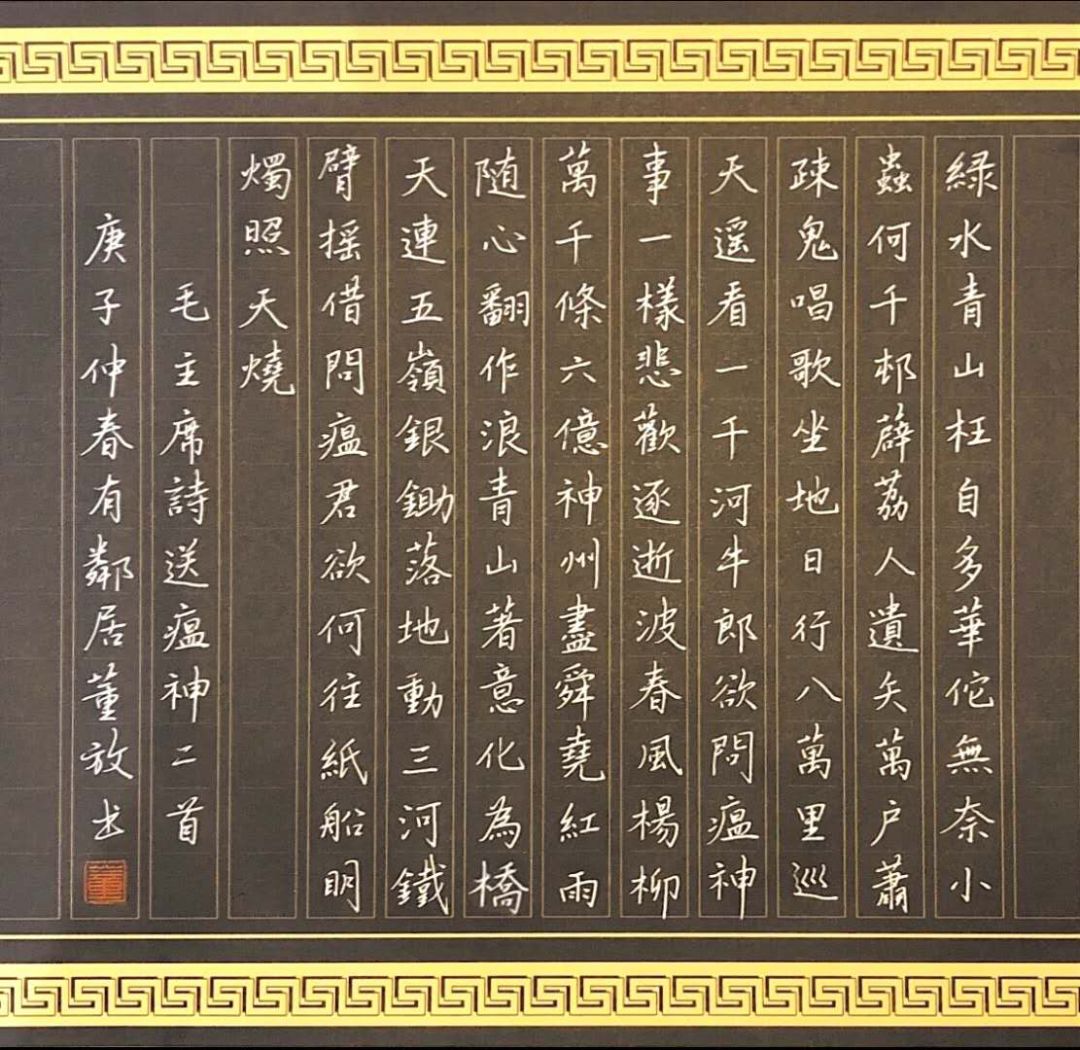 緑水青山枉自多華佗無奈小
蟲何千邨薜荔人遺矢萬户蕭
疎鬼唱歌坐地日行八萬里巡
天遥看一千河牛郎欲問瘟神
事一樣悲歡逐逝波春風楊柳
萬千條六億神州盡舜堯紅雨
随心翻作浪青山著意化為橋
天連五嶺銀鋤落地動三河鐵
臂摇借問瘟君欲何往紙船明
燭照天燒
毛主席詩送瘟神二首
庚子仲春有鄰居董放书
董